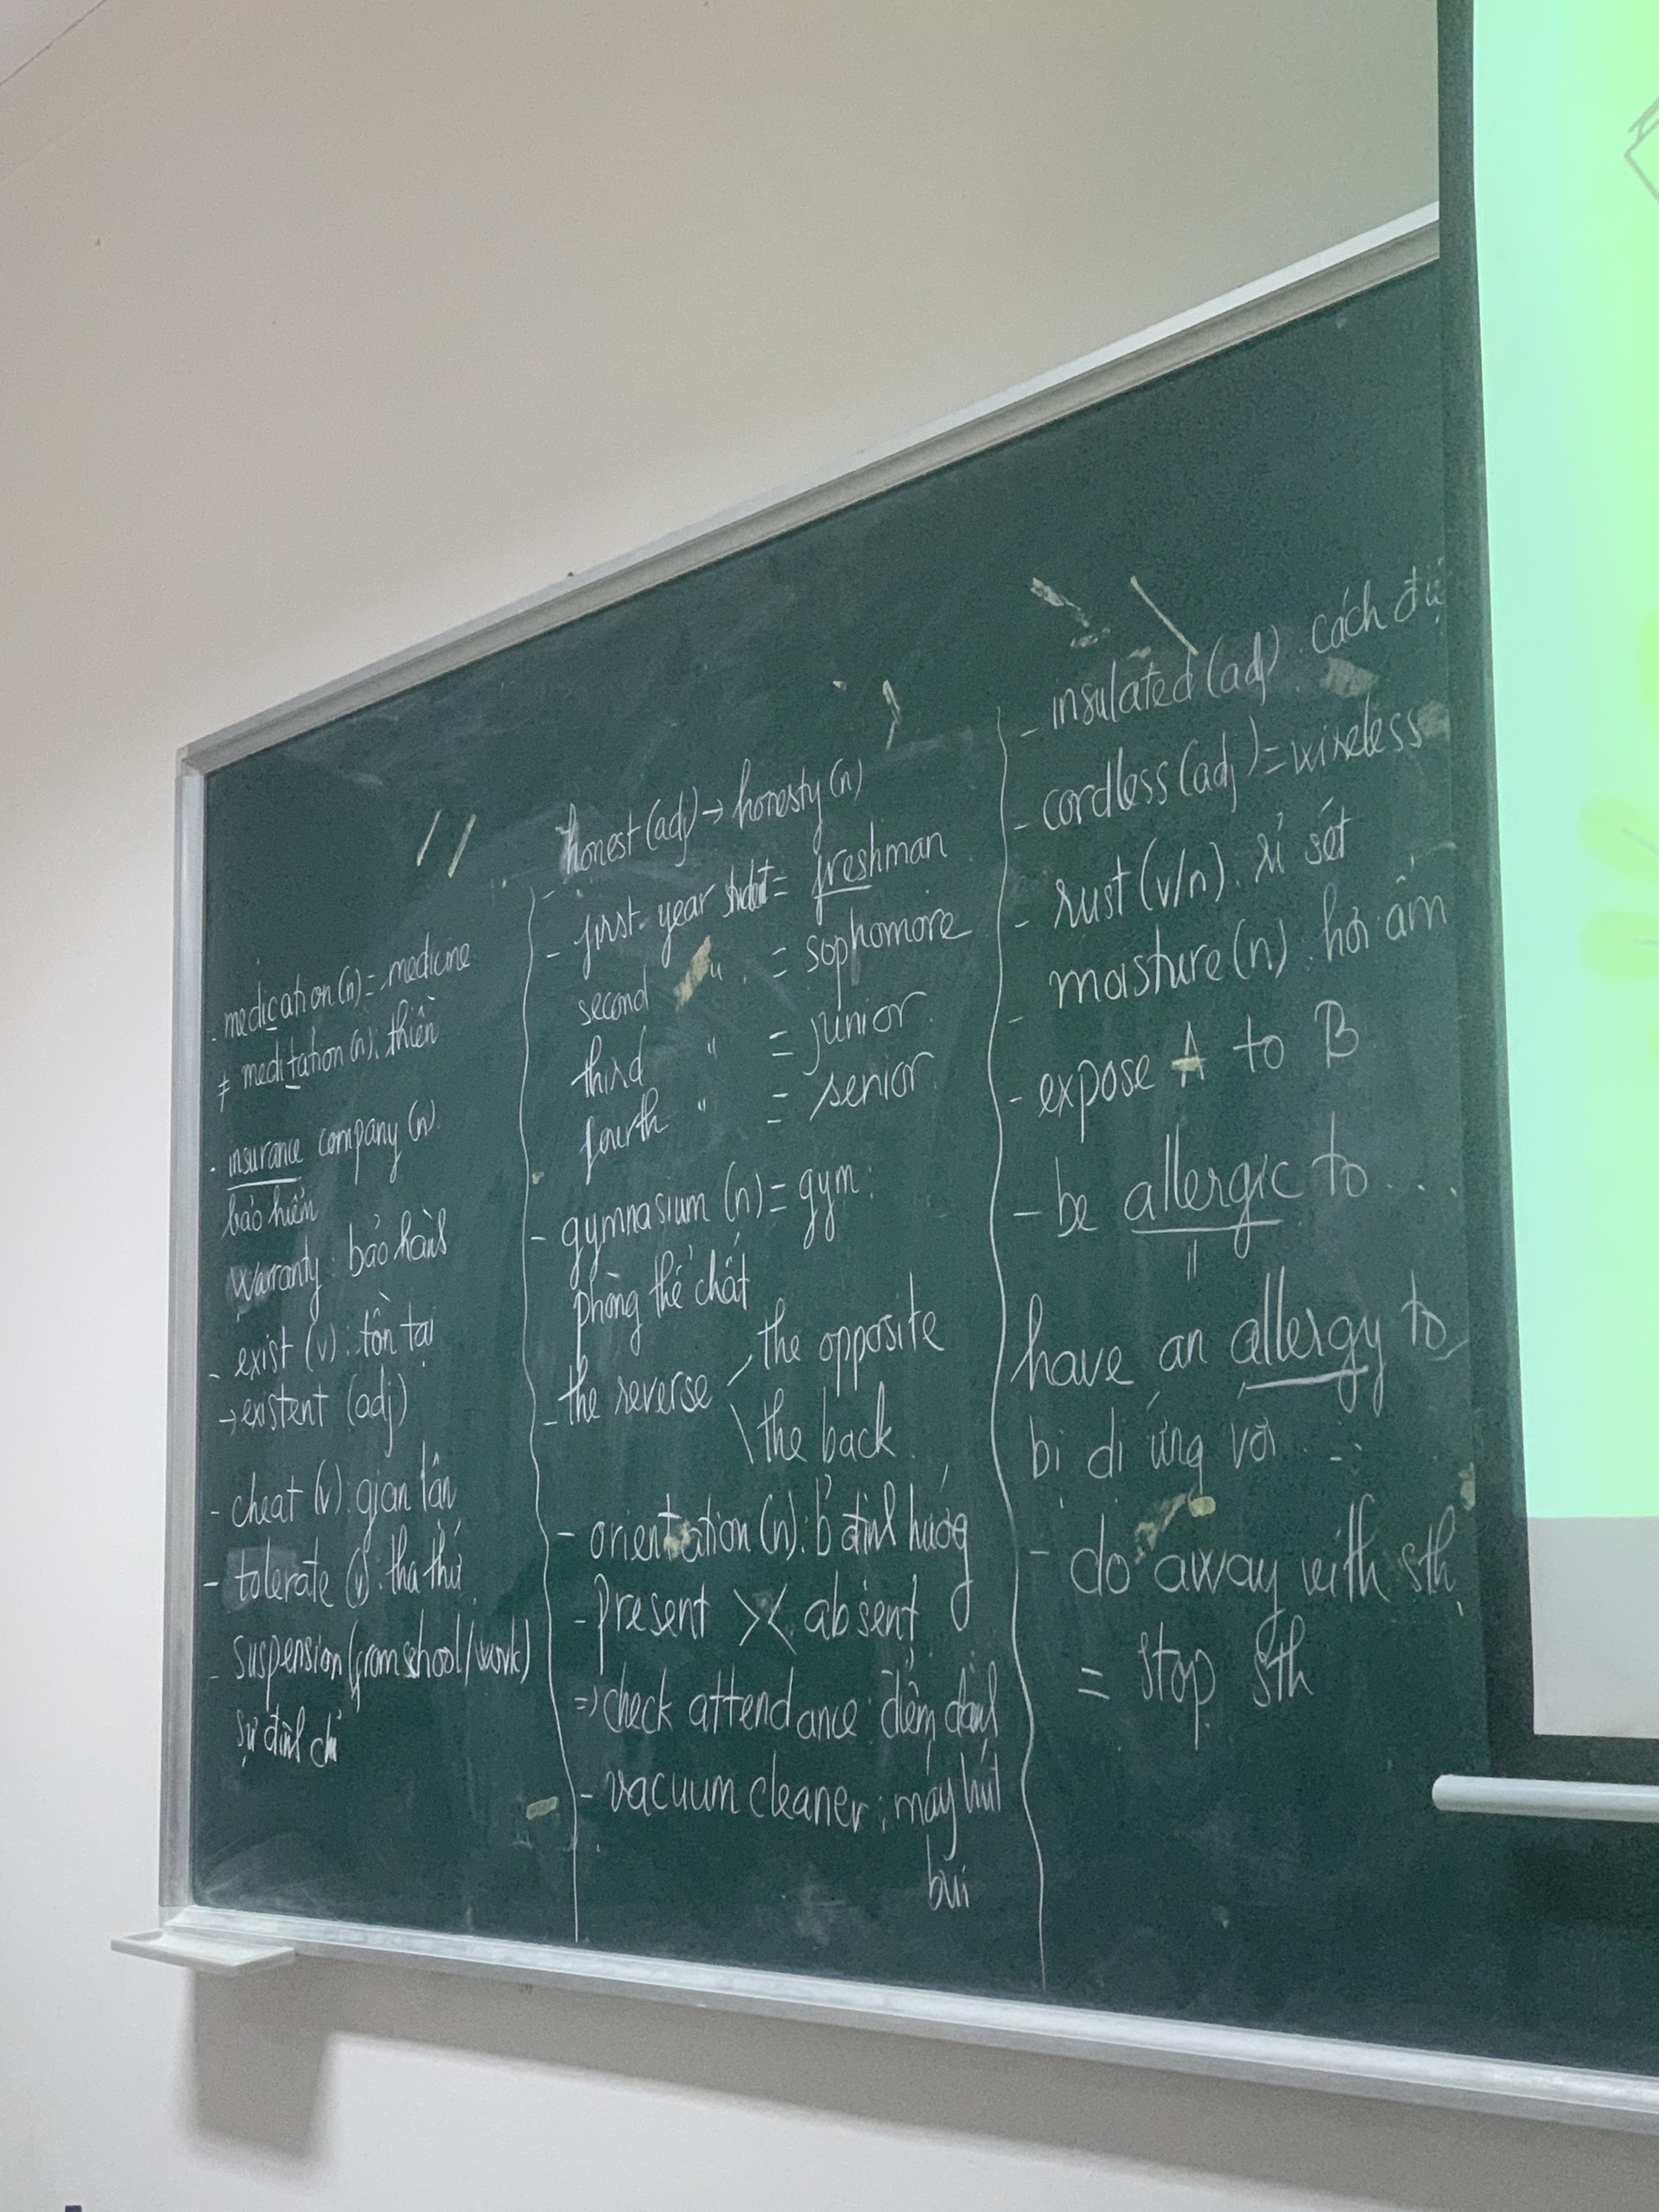 - medication (n) = medicine
≠ meditation (n): thiền
- insurance company (n)
bảo hiểm
warranty: bảo hành
- exist (v): tồn tại
→ existent (adj)
- cheat (v): gian lận
- tolerate (v): tha thứ
- suspension (from school/work)
sự đình chỉ
- honest (adj) → honesty (n)
- first-year student = freshman
second " = sophomore
third " = junior
fourth " = senior
- gymnasium (n) = gym
phòng thể chất
- the reverse
the opposite
the back
- orientation (n): b̉ định hướng
- present >< absent
=> check attendance: điểm danh
- vacuum cleaner: máy hút
bụi
- insulated (adj): cách
- cordless (adj) = wireless
- rust (v/n): rỉ sét
- moisture (n): hơi ẩm
- expose A to B
- be allergic to ...
=
have an allergy to
bị dị ứng với ...
- do away with sth
= stop sth